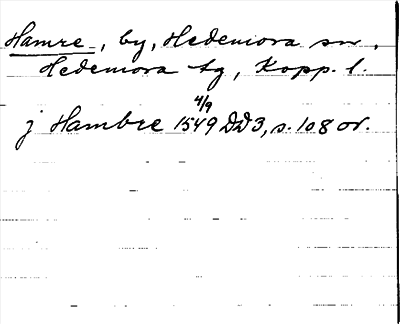 Hamre, by, Hedemora sn,
Hedemora tg, Kopp. l.
4/9
j Hambre 1549 DD3, s. 108 or.